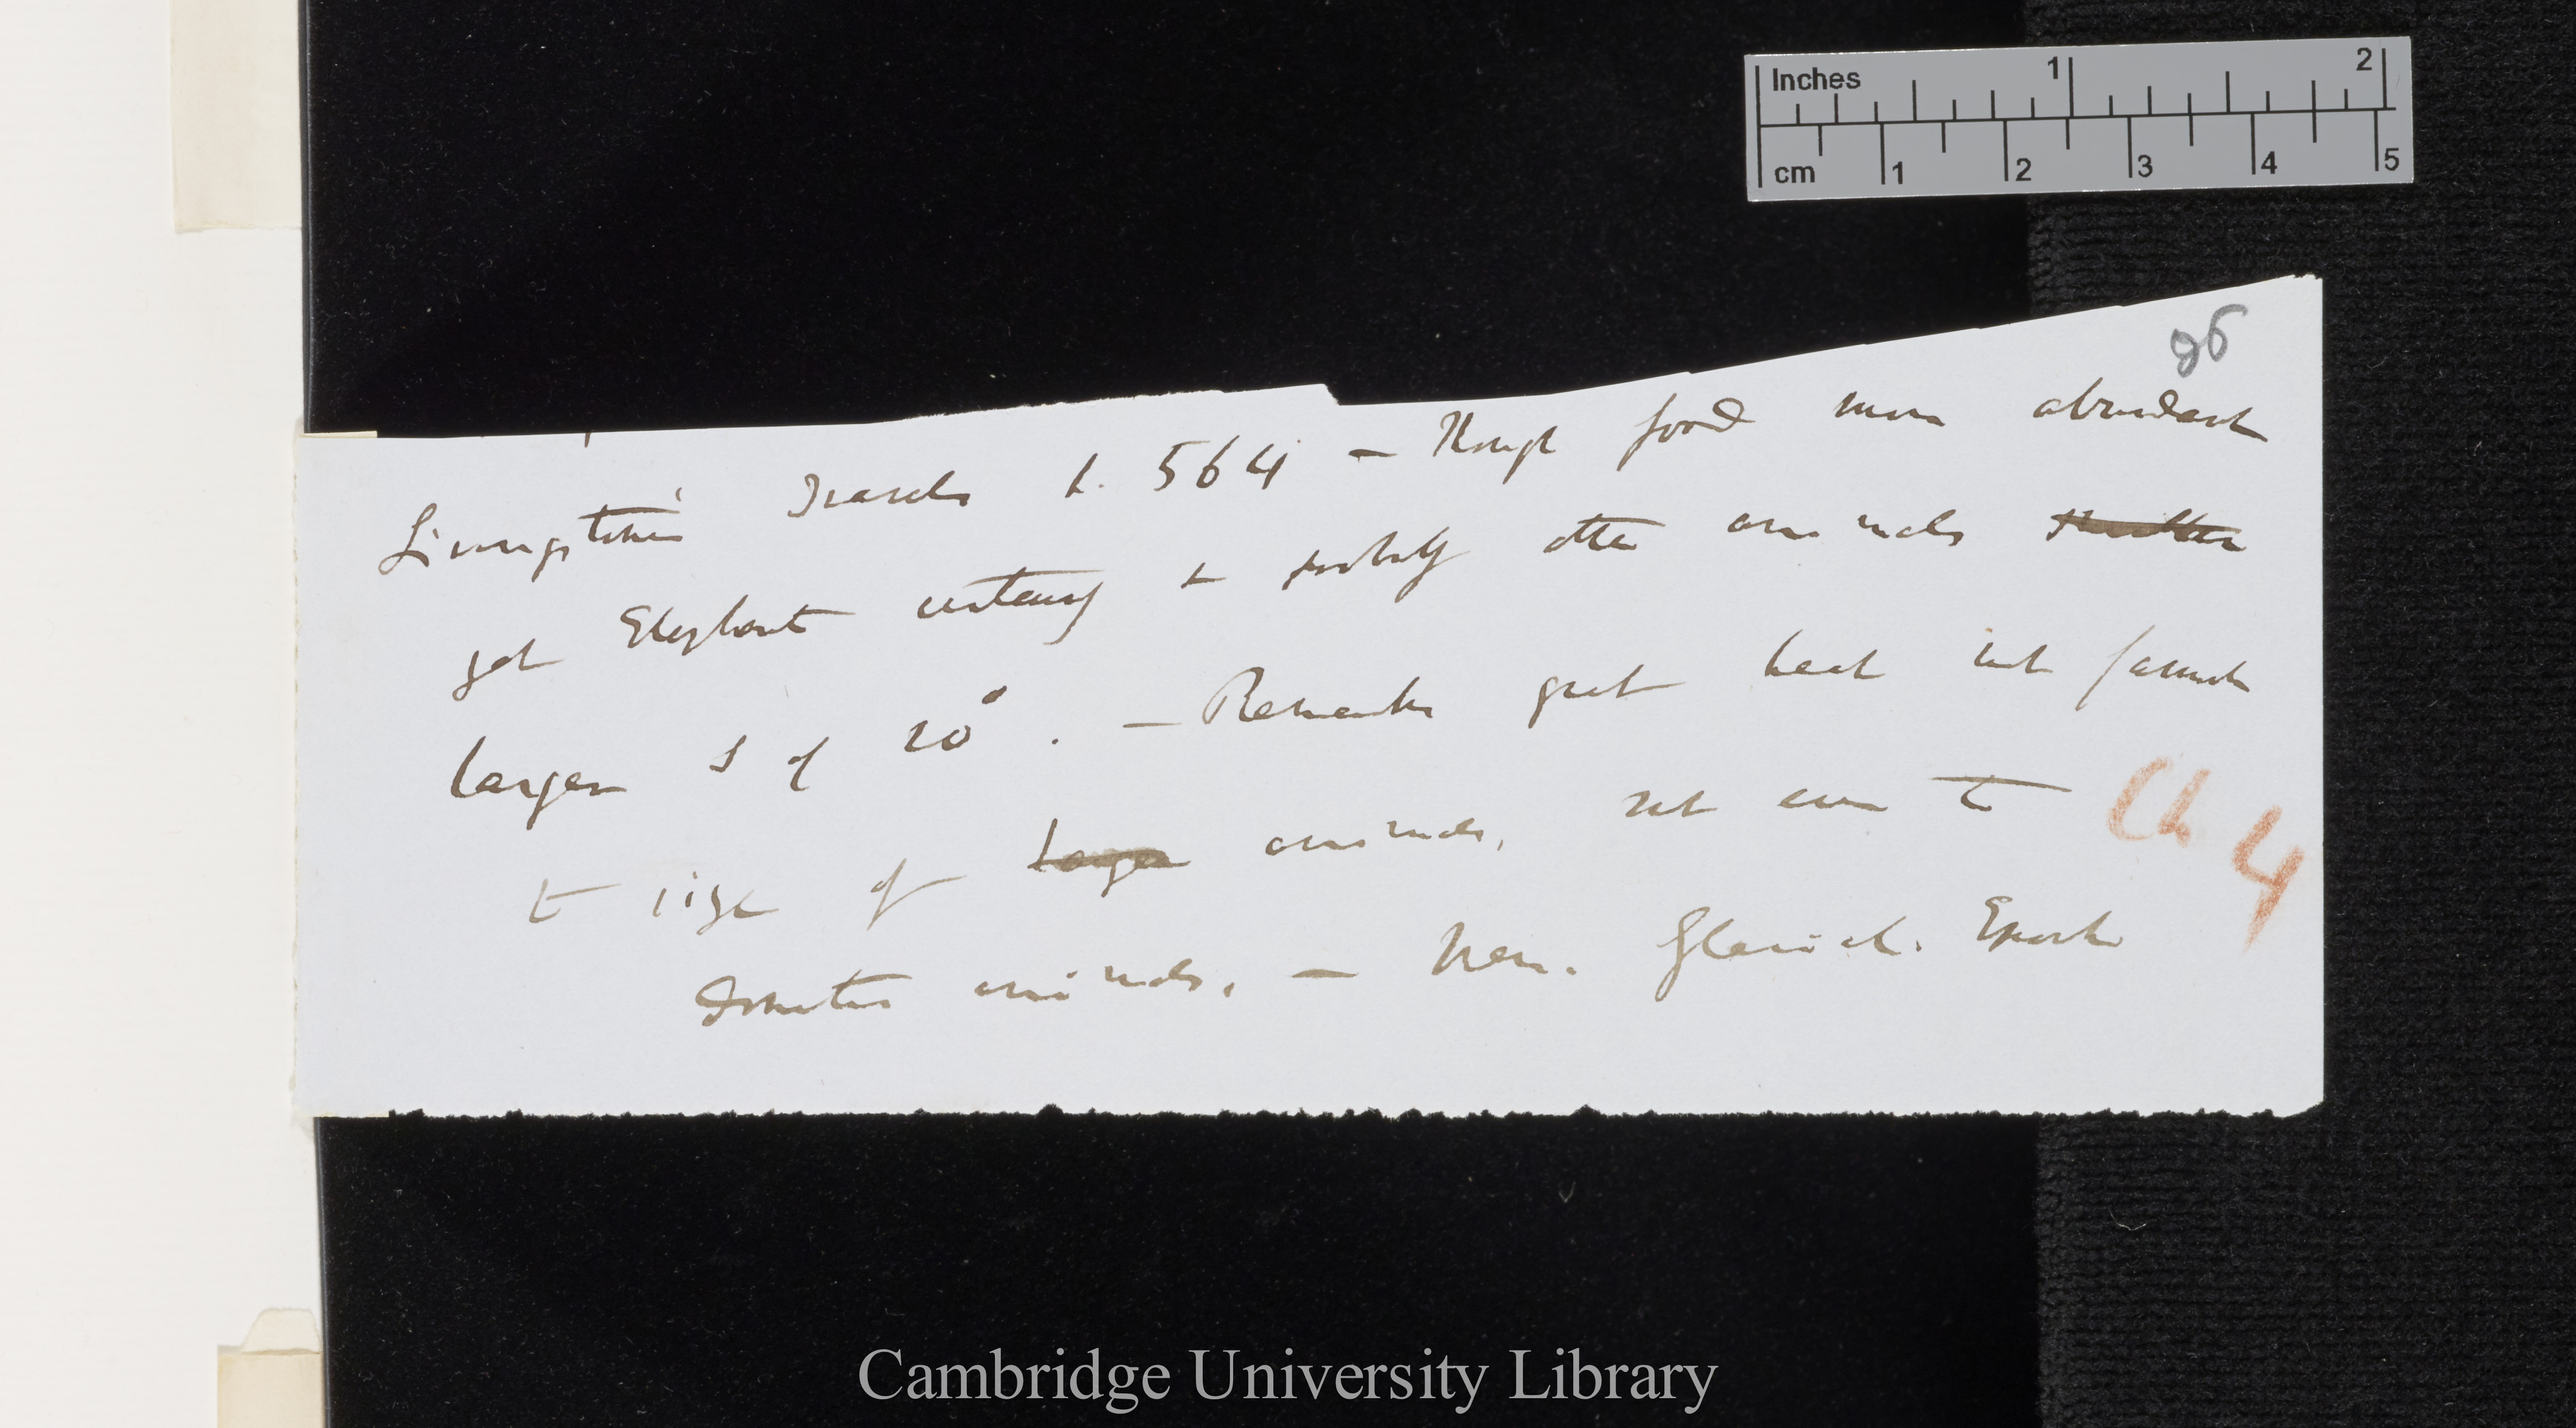 Inches 1 2
cm 1 2 3 4 5
96
Livingstone's Travels p. 564 — Though food more abundant
yet Elephant certainly & probably other animals smaller
larger S of 20°. — Remarks great heat not favourable
to size of larger animals, not even to
Ch 4
domestic animals. — New. Glacial. Epoch
Cambridge University Library